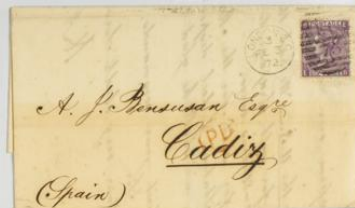 A. J. Bensusan Esqre
Cadiz
(Spain)
PD